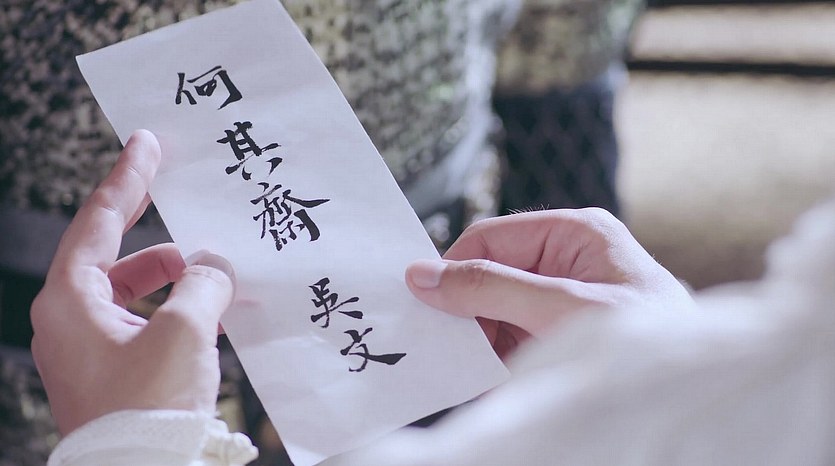 何其齋
吳文